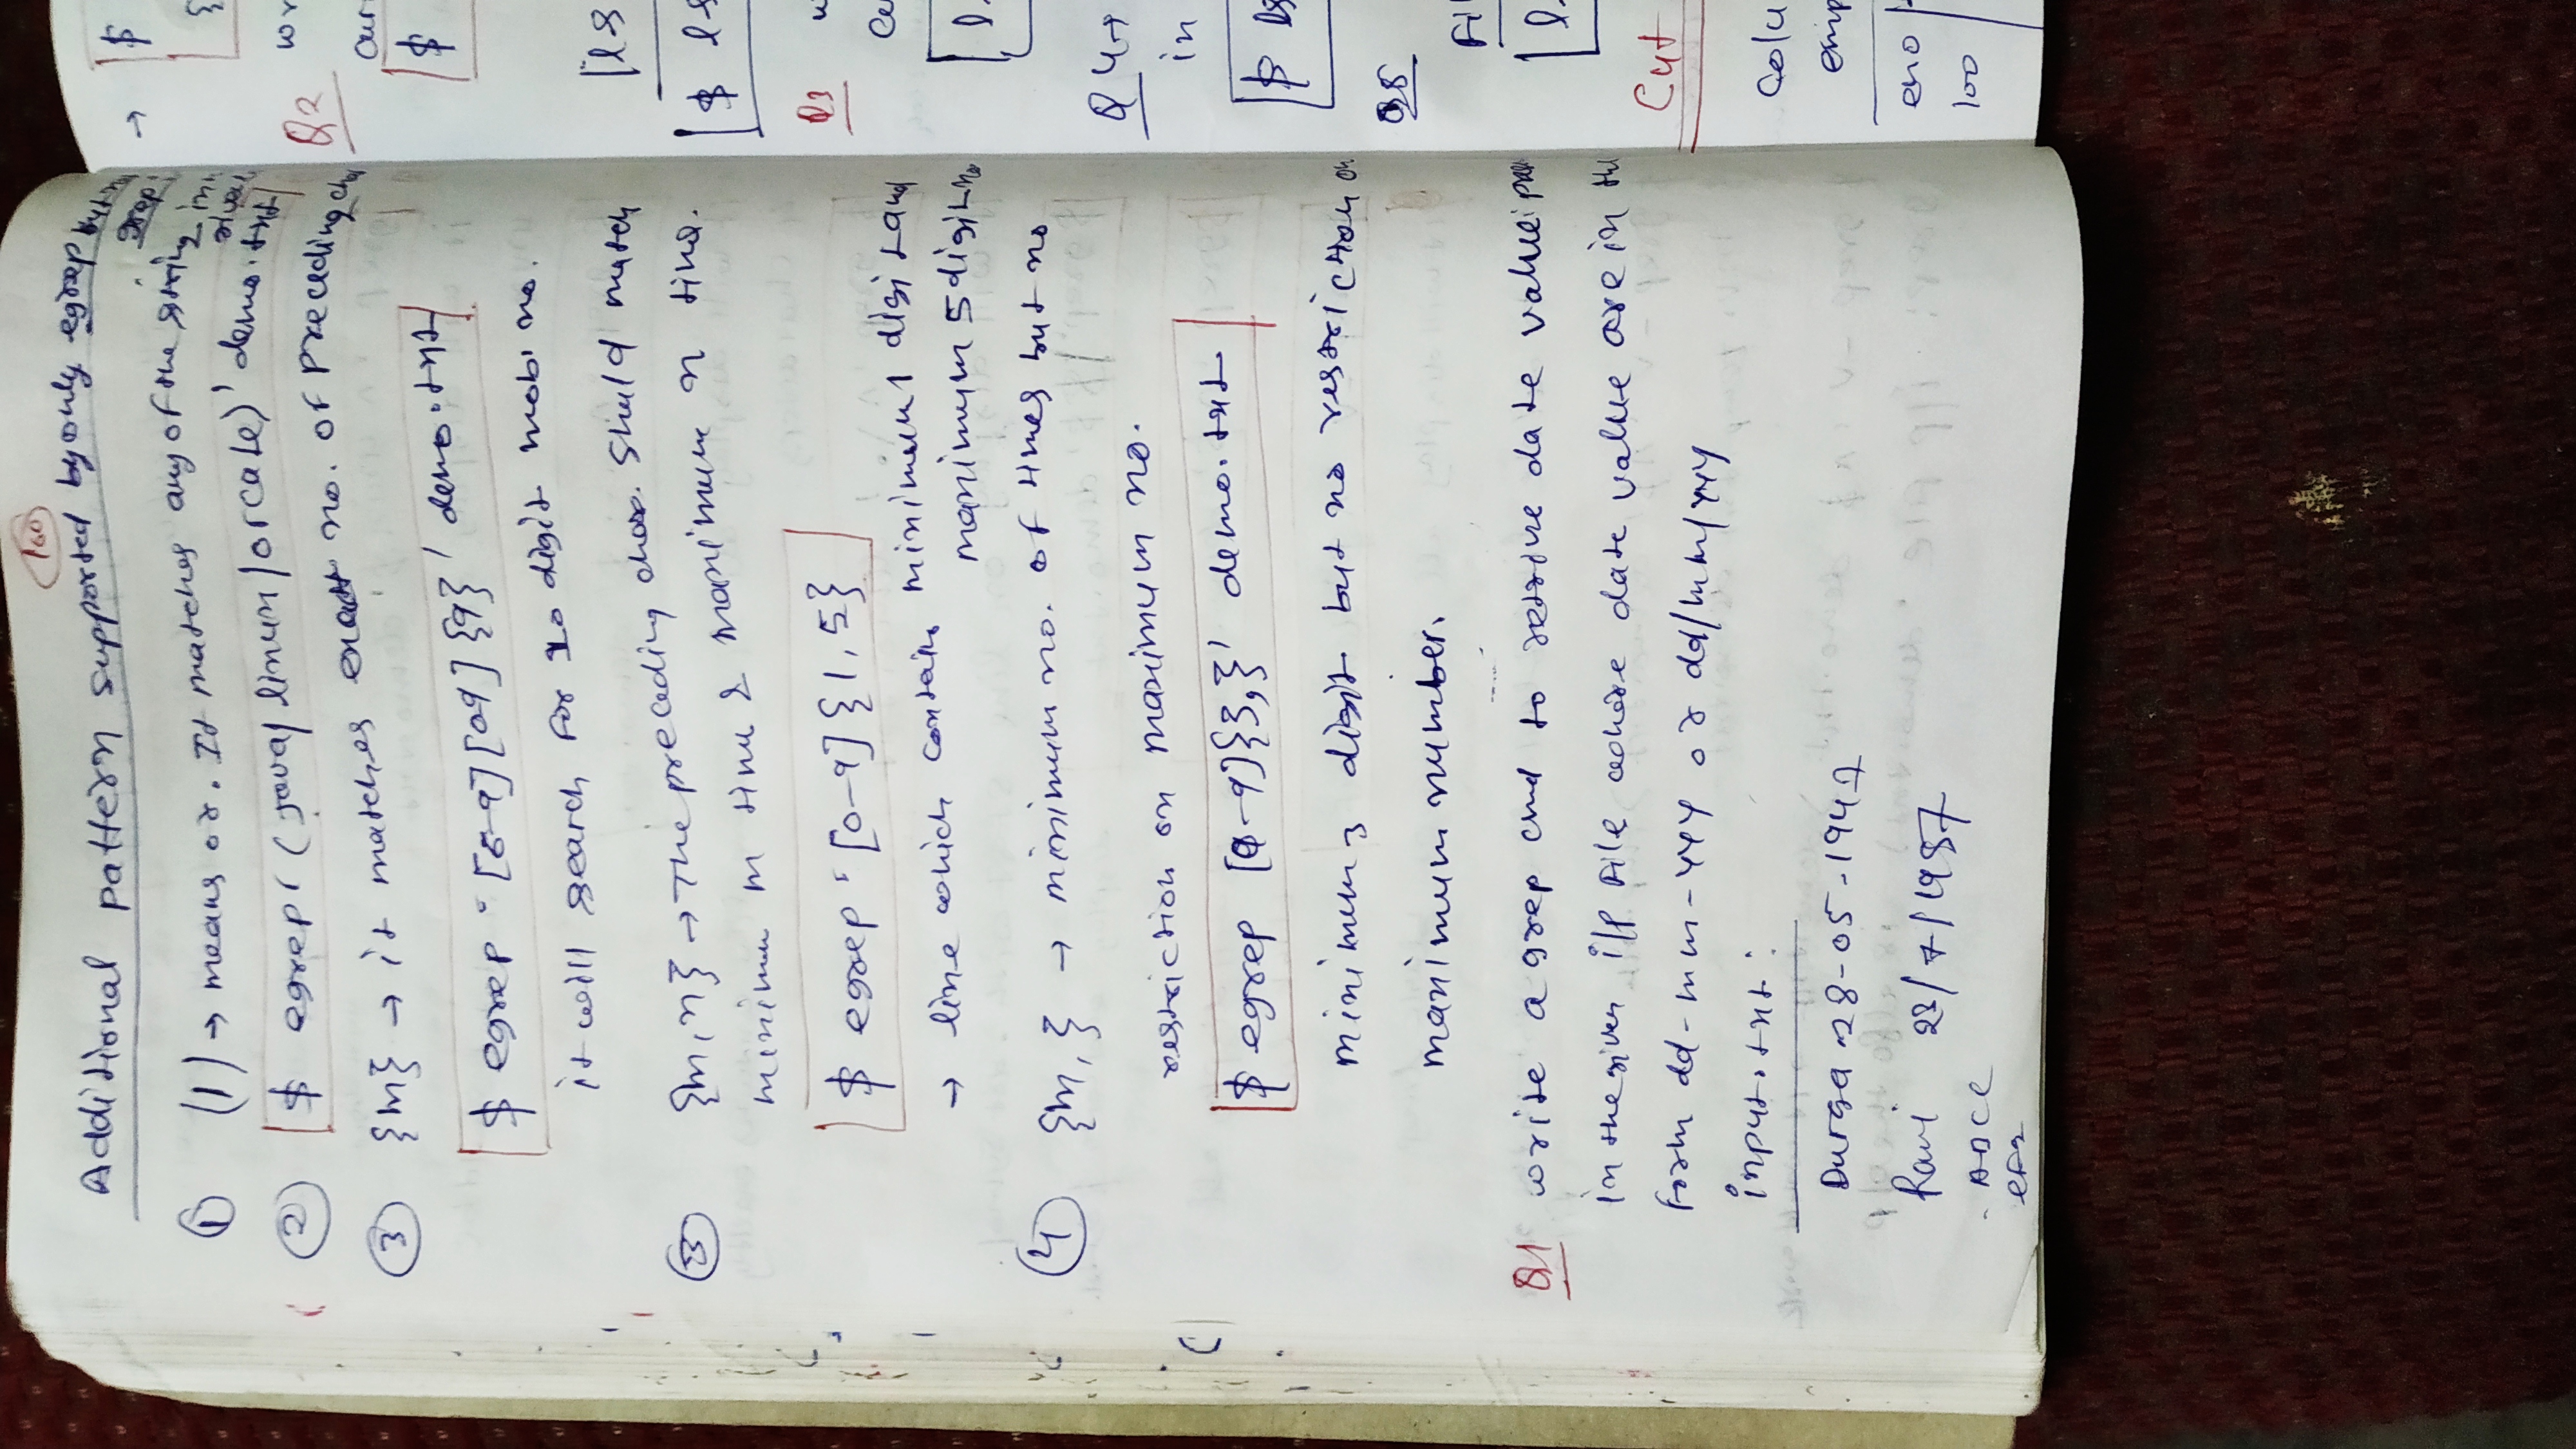 160
Additional pattern supported by only egrep but not
grep:
① (|) → means or. It matches any of the string in
② $ egrep ' (java/linux/orcale)' demo.txt
③ {m} → it matches exact no. of preceding char
$ egrep '[6-9][0-9]{9}' demo.txt
it will search for 10 digit mob. no.
{m,n} → The preceding char. Shuld match
minimum m time & maximum n time.
$ egrep '[0-9]{1,5}
→ line which contain minimum 1 digit and
maximum 5 digit no
④ {m,} → minimum no. of times but no
restriction on maximum no.
$ egrep [0-9]{3,}' demo.txt
minimum 3 digit but no restriction on
maximum number.
Q1 write a grep cmd to retrive date value
in the given i/p file where date value are in the
form dd-mm-yyy or dd/mm/yyy
input.txt:
Durga 28-05-1947
Ravi 23/7/1987
ABCC
→ $
{
Q2 wr
curr
$
ls
$ ls
Q3 w
cu
l
Q4→
in
$ ls
Q5
Fil
l
Cut
Colu
emp
eno
100